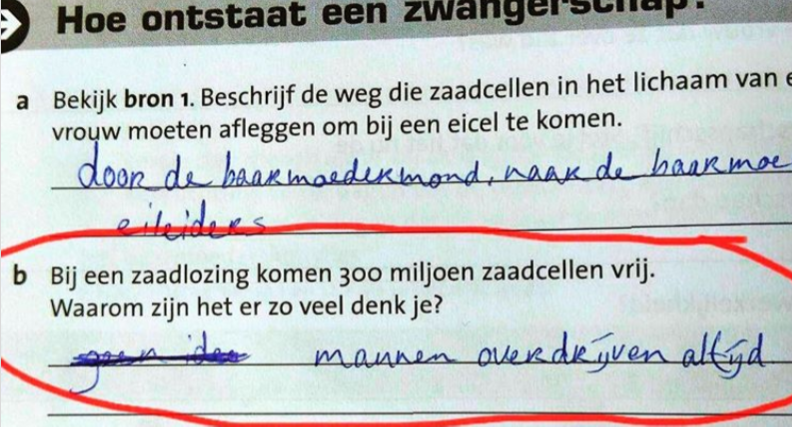 Hoe ontstaat een zwangerschap?
a Bekijk bron 1. Beschrijf de weg die zaadcellen in het lichaam van e
vrouw moeten afleggen om bij een eicel te komen.
door de baarmoedermond, naar de baarmoe
eileiders
b Bij een zaadlozing komen 300 miljoen zaadcellen vrij.
Waarom zijn het er zo veel denk je?
geen idee mannen overdrijven altijd